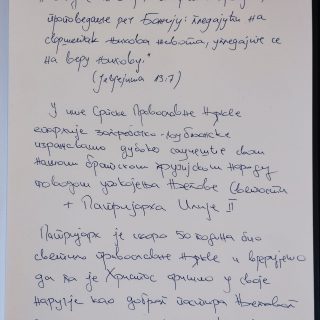 проповедаше реч Божију: гледајући на
свршетак њихова живота, угледајте се
на веру њихову."
(Јеврејима 13:7)
У име Српске Православне Цркве
епархије загребачко-љубљанске
изражавамо дубоко саучешће свом
нашем братском грузијском народу
поводом упокојења Његове Светости
+ Патријарха Илије II
Патријарх је скоро 50 година био
светило православне Цркве и верујемо
да га је Христос примио у своје
наручје као доброг пастира Његовог